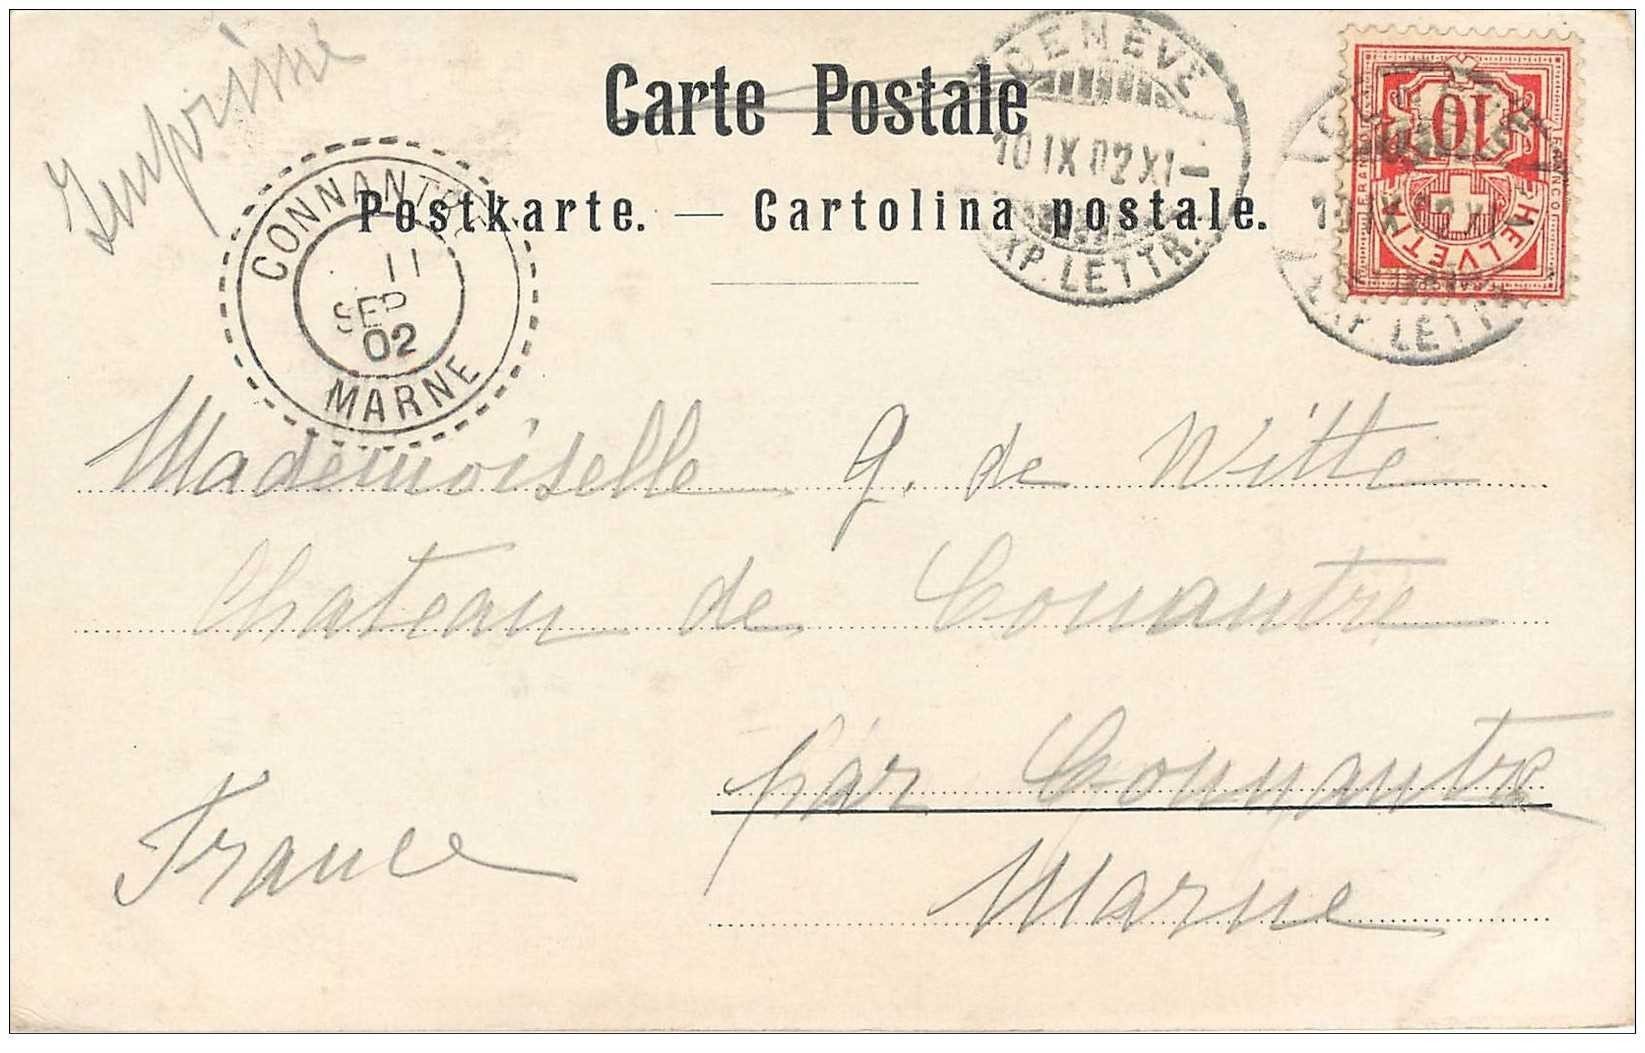 Imprimé
Carte Postale
Postkarte. — Cartolina postale.
GENÈVE
10 IX 02 XI—
EXP. LETTR.
10
FRANCO
HELVETIA
EXP. LETTR.
CONNANTRE
11
SEP
02
MARNE
Mademoiselle G. de Witte
Chateau de Connantre
par Connantre
Marne
France